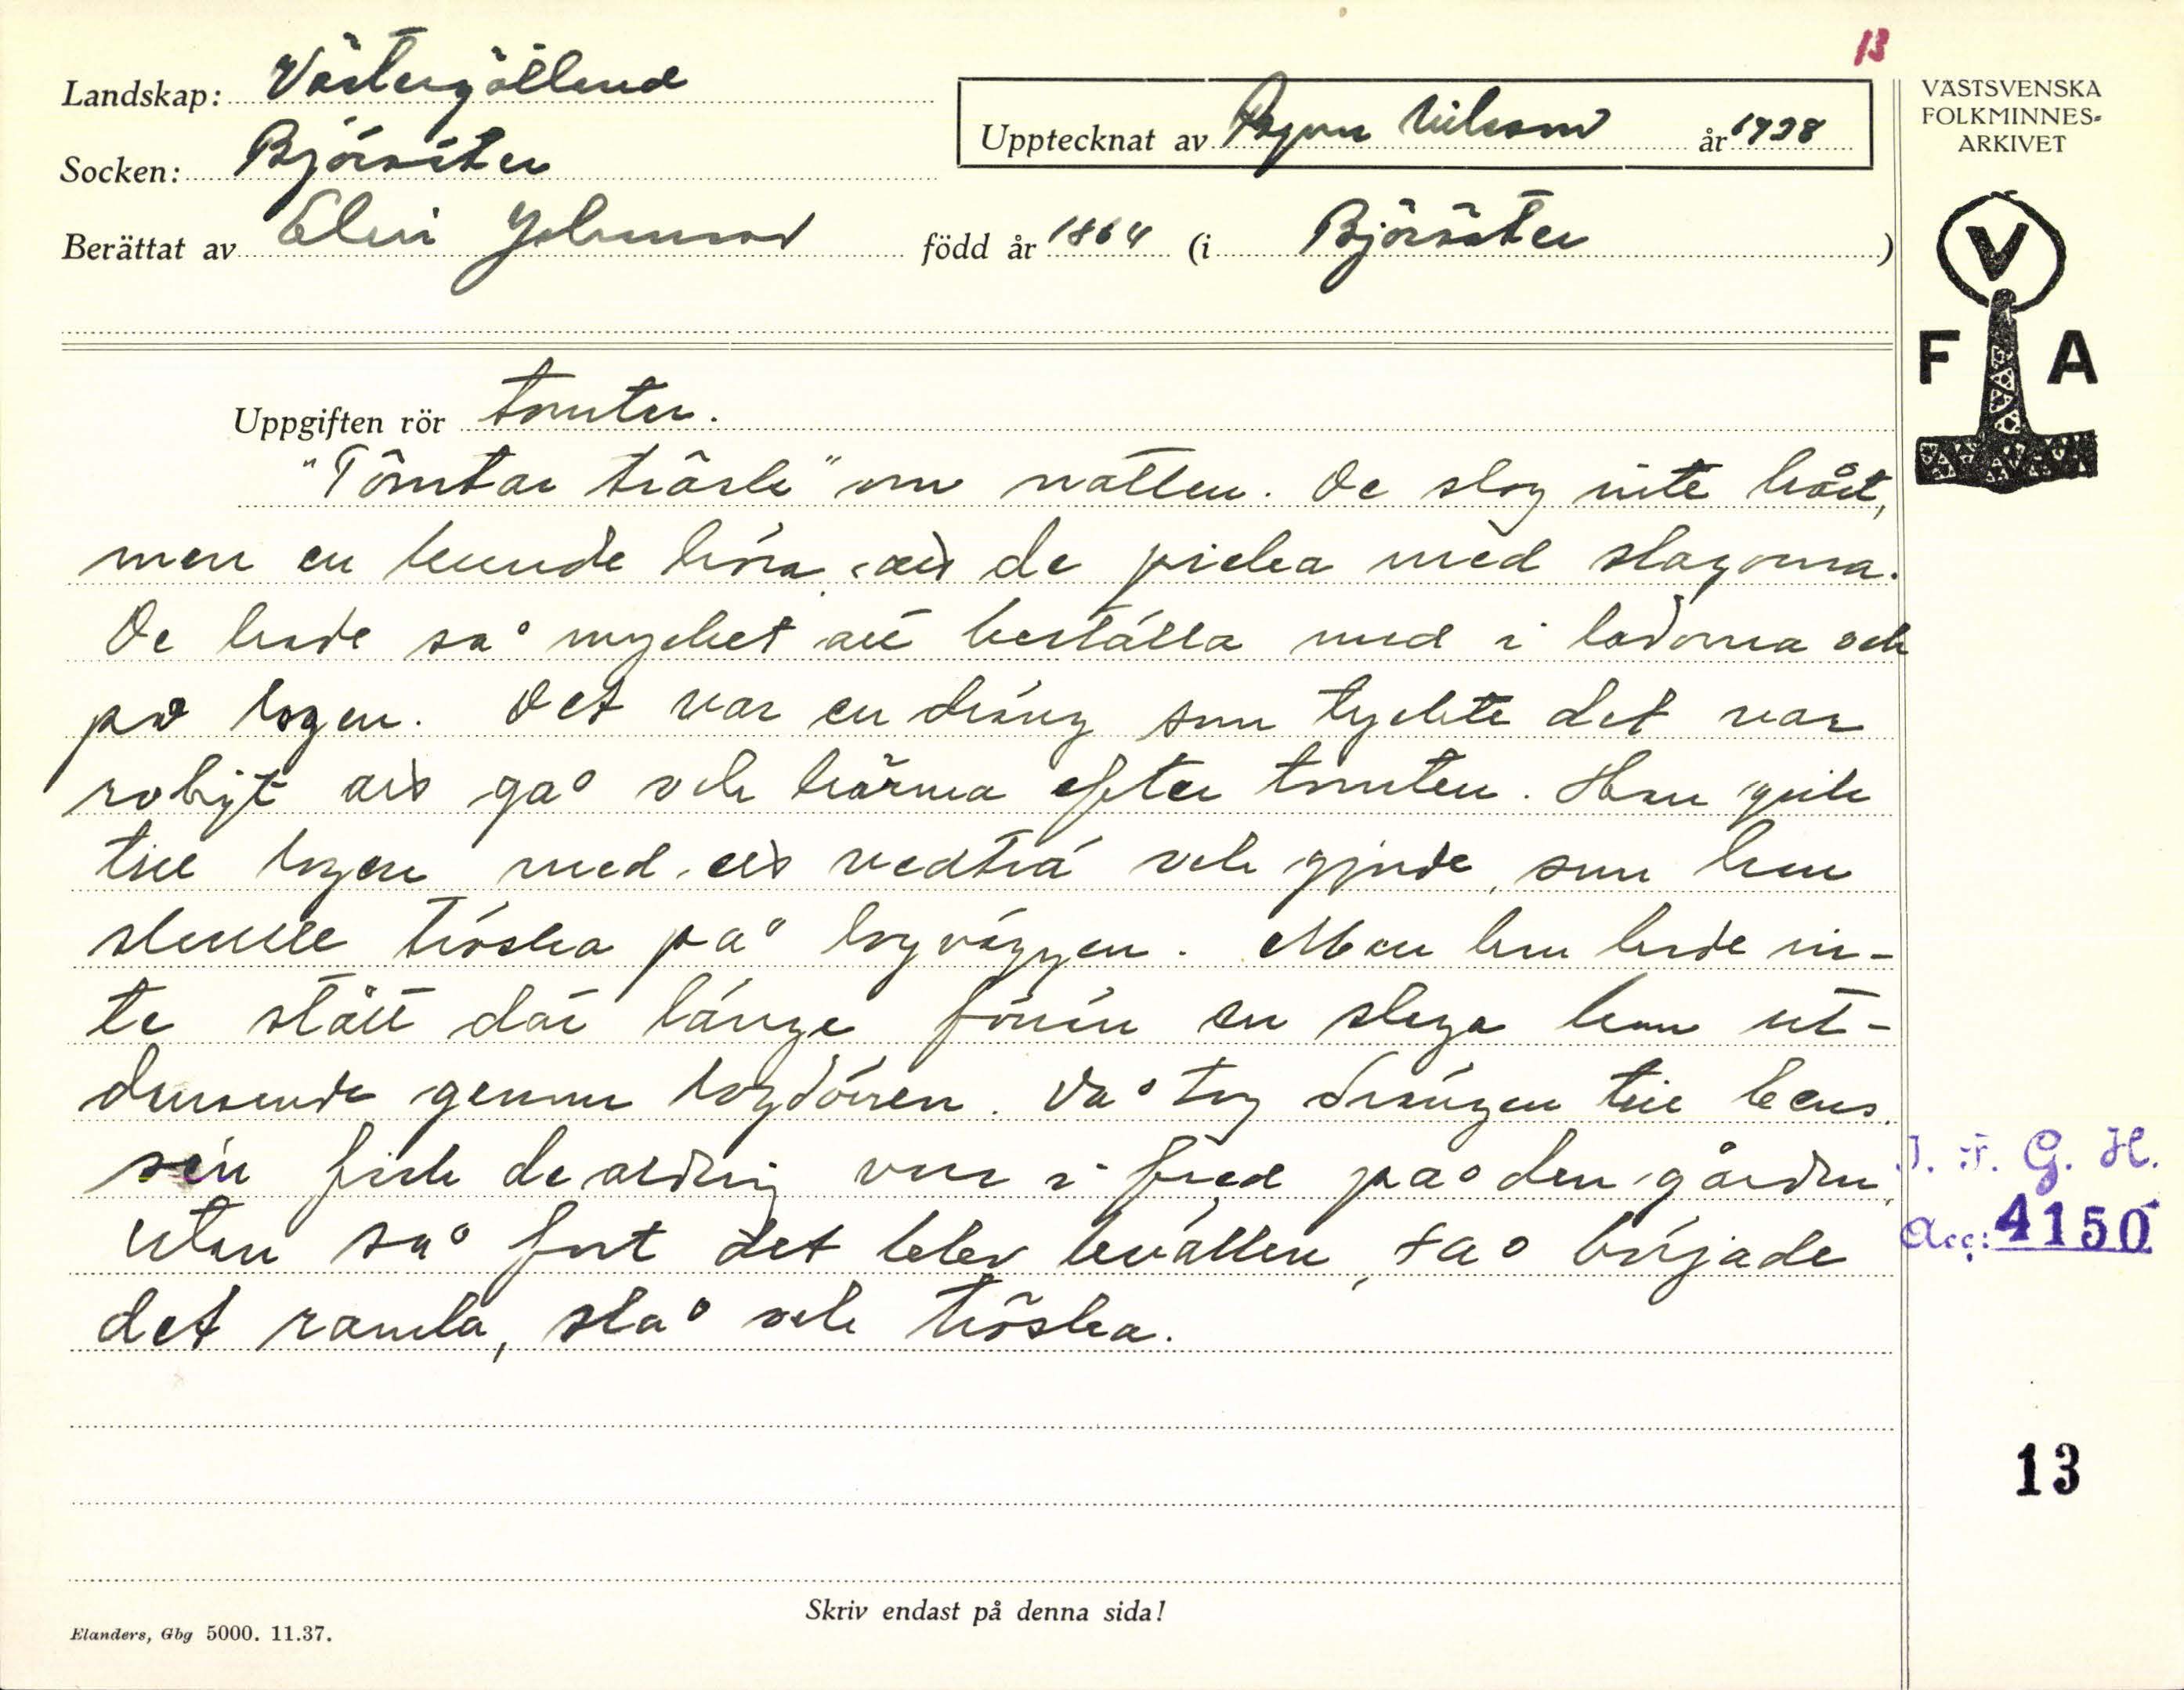 13
Landskap: Västergötland
Socken: Björsäter
Upptecknat av Ragnar Nilsson år 1938
Berättat av Elin Johansson född år 1864 (i Björsäter)
VÄSTSVENSKA
FOLKMINNES-
ARKIVET
V
F A
Uppgiften rör tomten.
"Tômtar trôsk" om natten. De slog inte hårt,
men en kunde höra att de picka med slagorna.
De hade så mycket att beställa med i ladorna och
på logen. Det var en dräng som tyckte det var
roligt att gå och härma efter tomten. Han gick
till logen med ett vedträ och gjorde, som han
skulle tröska på logväggen. Men han hade in-
te stått där länge förrän en slaga kom ut-
dansande genom logdörren. Då tog drängen till bens.
sen fick de aldrig vara i fred på den gården,
utan så fort det blev kvällen, så började
det ramla, slå och tröska.
I. F. G. H.
Acc: 4150
13
Skriv endast på denna sida!
Elanders, Gbg 5000. 11.37.